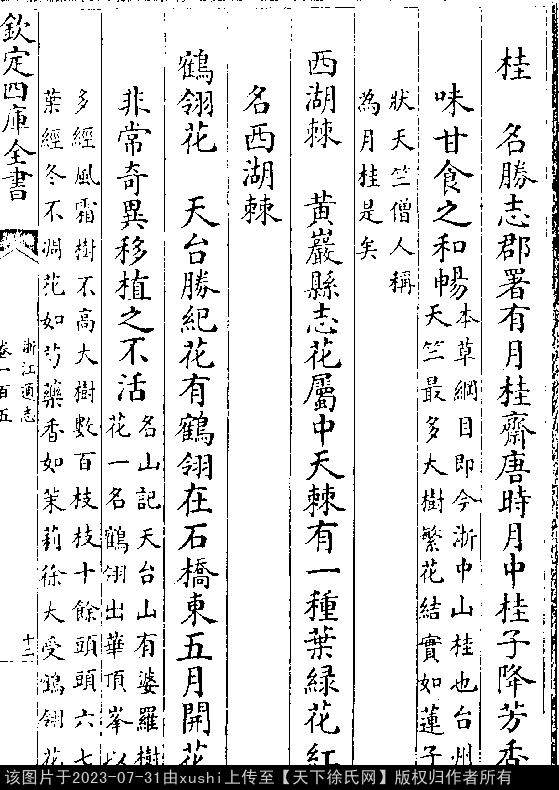 桂　名勝志郡署有月桂齋唐時月中桂子降芳香
味甘食之和暢
本草綱目即今浙中山桂也台州
天竺最多大樹繁花結實如蓮子
狀天竺僧人稱
為月桂是矣
西湖棘　黃巖縣志花屬中天棘有一種葉緑花紅
名西湖棘
鶴翎花　天台勝紀花有鶴翎在石橋東五月開花
非常奇異移植之不活
名山記天台山有婆羅樹
花一名鶴翎出華頂峯以
多經風霜樹不高大樹數百枝枝十餘頭頭六七
葉經冬不凋花如芍藥香如茉莉徐大受鶴翎花
欽定四庫全書
浙江通志
卷一百五
十二
该图片于2023-07-31由xushi上传至【天下徐氏网】版权归作者所有